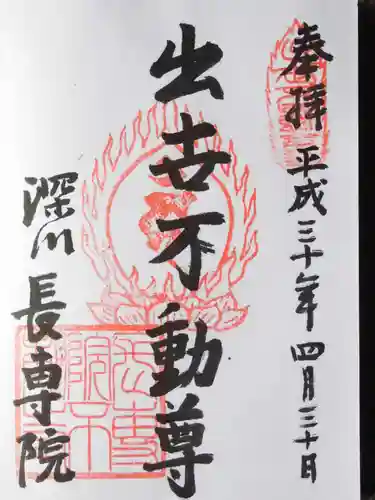 奉拝 平成三十年四月三十日
出世不動尊
深川 長専院